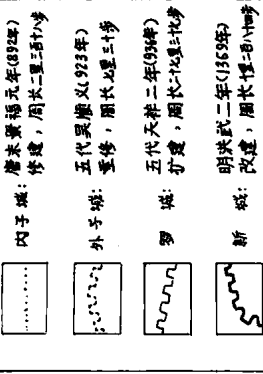 内子城：唐末景福元年(892年)
修建，周长二里三百步
外子城：五代吴顺义(923年)
重修，周长七里三十步
罗　城：五代天祚二年(936年)
扩建，周长二十七里三十步
新　城：明洪武二年(1369年)
改建，周长